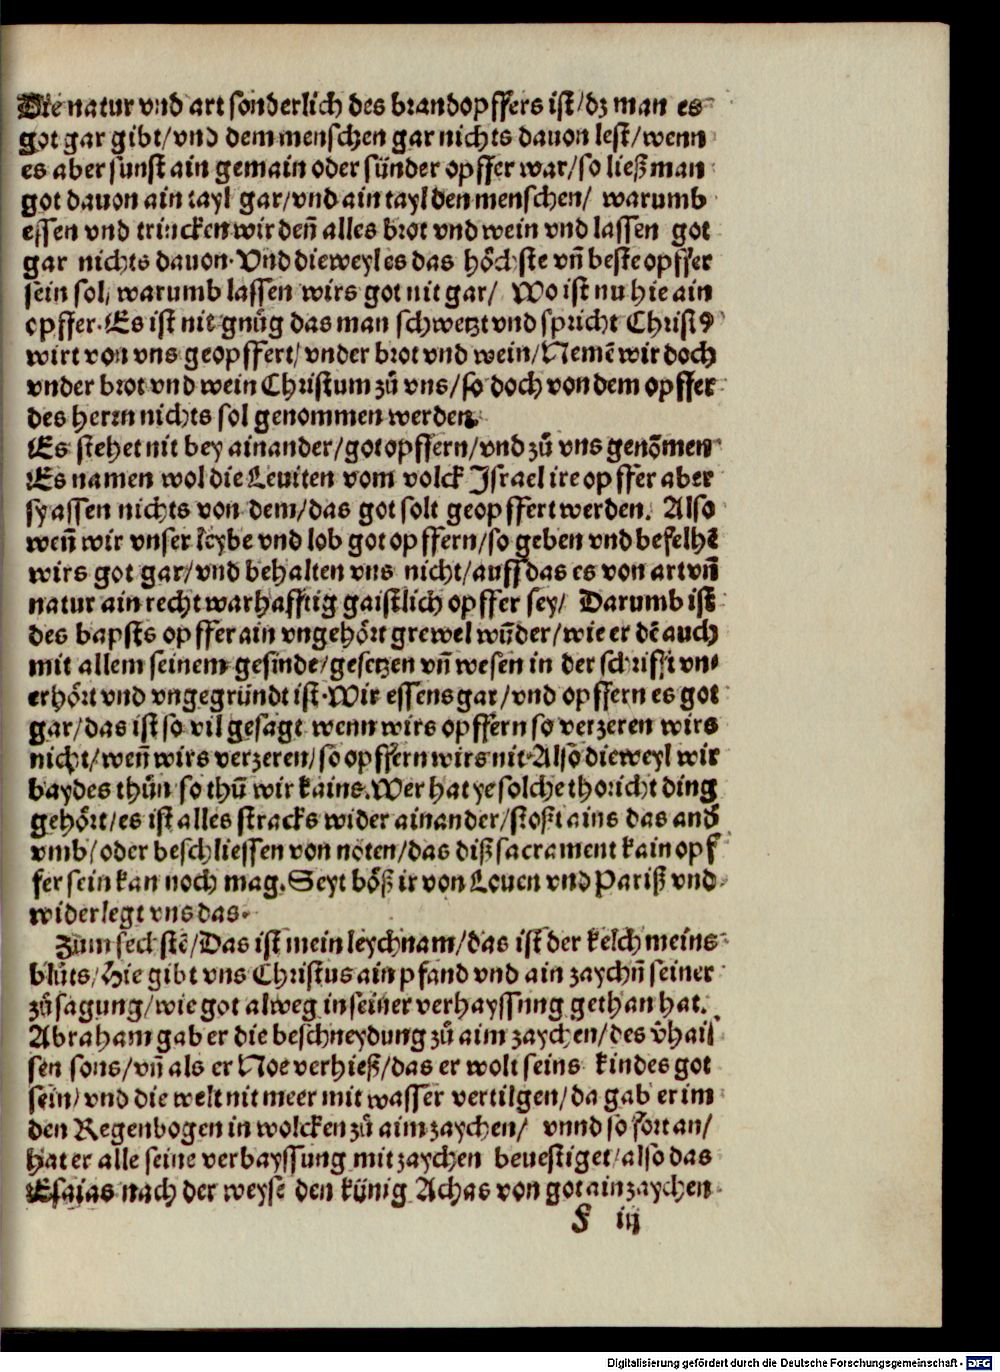 Die natur vnd art sonderlich des brandopffers ist/dz man es
got gar gibt/vnd dem menschen gar nichts dauon lest/wenn
es aber sunst ain gemain oder sünder opffer war/so ließ man
got dauon ain tayl gar/vnd ain tayl den menschen/ warumb
essen vnd trincken wir deñ alles brot vnd wein vnd lassen got
gar nichts dauon. Vnd dieweyl es das höchste vñ beste opffer
sein sol, warumb lassen wirs got nit gar/ Wo ist nu hie ain
opffer. Es ist nit gnůg das man schwetzt vnd spricht Christꝰ
wirt von vns geopffert/vnder brot vnd wein/Nemē wir doch
vnder brot vnd wein Christum zů vns/so doch von dem opffer
des herrn nichts sol genommen werden.
Es stehet nit bey ainander/got opffern/vnd zů vns genõmen
Es namen wol die Leuiten vom volck Israel ire opffer aber
sy assen nichts von dem/das got solt geopffert werden. Also
weñ wir vnser leybe vnd lob got opffern/so geben vnd befelhē
wirs got gar/vnd behalten vns nicht/auff das es von art vñ
natur ain recht warhafftig gaistlich opffer sey/ Darumb ist
des bapsts opffer ain vngehört grewel wũder/wie er dē auch
mit allem seinem gesinde/gesetzen vñ wesen in der schrifft vn⸗
erhört vnd vngegründt ist. Wir essens gar/vnd opffern es got
gar/das ist so vil gesagt wenn wirs opffern so verzeren wirs
nicht/weñ wirs verzeren/so opffern wirs nit. Also dieweyl wir
baydes thůn so thů wir kains. Wer hat ye solche thoricht ding
gehört/es ist alles stracks wider ainander/stoßt ains das and̄
vmb/oder beschliessen von nöten/das diß sacrament kain opf
fer sein kan noch mag. Seyt böß ir von Louen vnd Pariß vnd
widerlegt vns das.
Zum sechstē/Das ist mein leychnam/das ist der kelch meins
blůts/Hie gibt vns Christus ain pfand vnd ain zaychñ seiner
zůsagung/wie got alweg in seiner verhayssung gethan hat.
Abraham gab er die beschneydung zů aim zaychen/des v̄hais
sen sons/vñ als er Noe verhieß/das er wolt seins kindes got
sein/vnd die welt nit meer mit wasser vertilgen/da gab er im
den Regenbogen in wolcken zů aim zaychen/ vnnd so fort an/
hat er alle seine verhayssung mit zaychen beuestiget/also das
Esaias nach der weyse den künig Achas von got ain zaychen
F iij
Digitalisierung gefördert durch die Deutsche Forschungsgemeinschaft - DFG